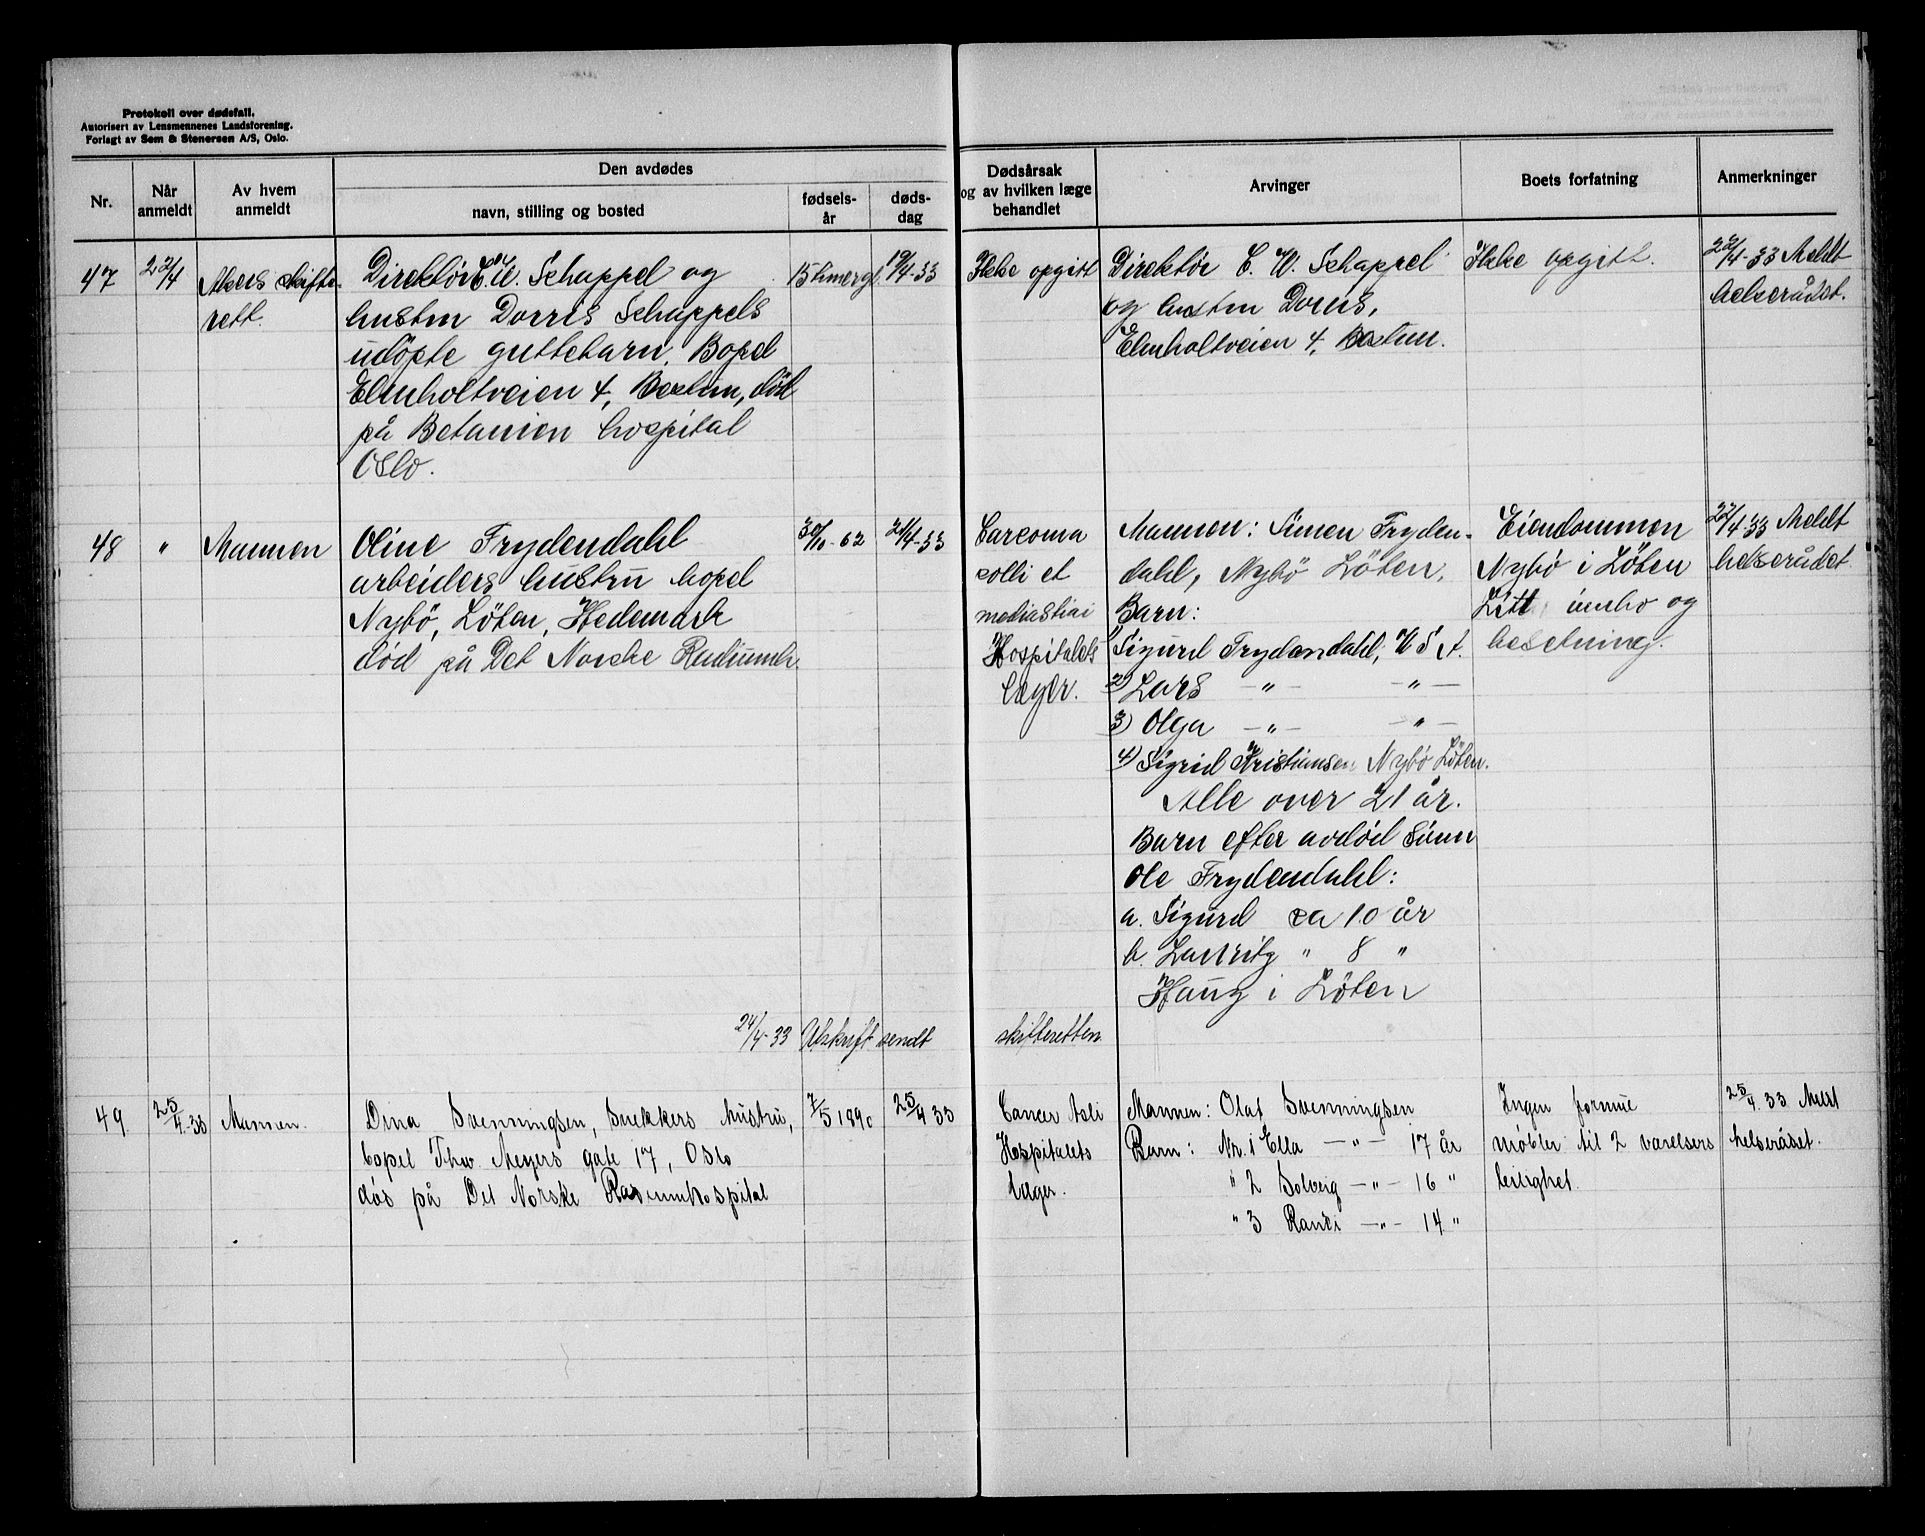 Protokoll over dødsfall.
Autorisert av Lensmennenes Landsforening.
Forlagt av Sem & Stenersen A/S, Oslo.
Nr.
Når anmeldt
Av hvem anmeldt
Den avdødes
navn, stilling og bosted
fødsels-år
døds-dag
Dødsårsak
og av hvilken læge
behandlet
Arvinger
Boets forfatning
Anmerkninger
47
22/4
Akers skifte-
rett.
Direktør C.W. Schappel og
hustru Dorris Schappels
udöpte guttebarn, Bopel
Elmholtveien 4, Bestum, död
på Betanien hospital
Oslo.
15 timer gl.
19/4-33
Ikke opgitt
Direktör C. W. Schappel
og hustru Dorris,
Elmholtveien 4, Bestum.
Ikke opgitt.
22/4-33 Meldt
helserådet.
48
"
Mannen
Oline Frydendahl
arbeiders hustru bopel
Nybö, Löten, Hedemark
död på Det Norske Radiumh.
30/10-62
21/4-33
Sarcoma
colli et
mediastini
Hospitalets
læger.
Mannen: Simen Fryden-
dahl, Nybö Löten.
Barn:
1) Sigurd Frydendahl, U S A.
2) Lars - " - - " -
3) Olga - " - - " -
4) Sigrid Kristiansen Nybö Löten.
Alle over 21 år.
Barn efter avdöd sönn
Ole Frydendahl:
a. Sigurd ca 10 år
b. Lauritz " 8 "
Haug i Löten
Eiendommen
Nybö i Löten
Litt innbo og
besetning.
22/4-33 Meldt
helserådet
24/4-33 Utskrift sendt skifteretten
49.
25/4-33
Mannen.
Dina Svenningsen, snekkers hustru,
bopel Thv. Meyers gate 17, Oslo
död på Det Norske Radiumhospital
7/5 1890
25/4 33
Cancer
Hospitalets
læger.
Mannen: Olaf Svenningsen
Barn: Nr. 1 Ella - " - 17 år
" 2 Solveig - " - 16 "
" 3 Randi - " - 14 "
Ingen formue
möbler til 2 værelsers
leilighet.
25/4. 33 Meldt
helserådet.